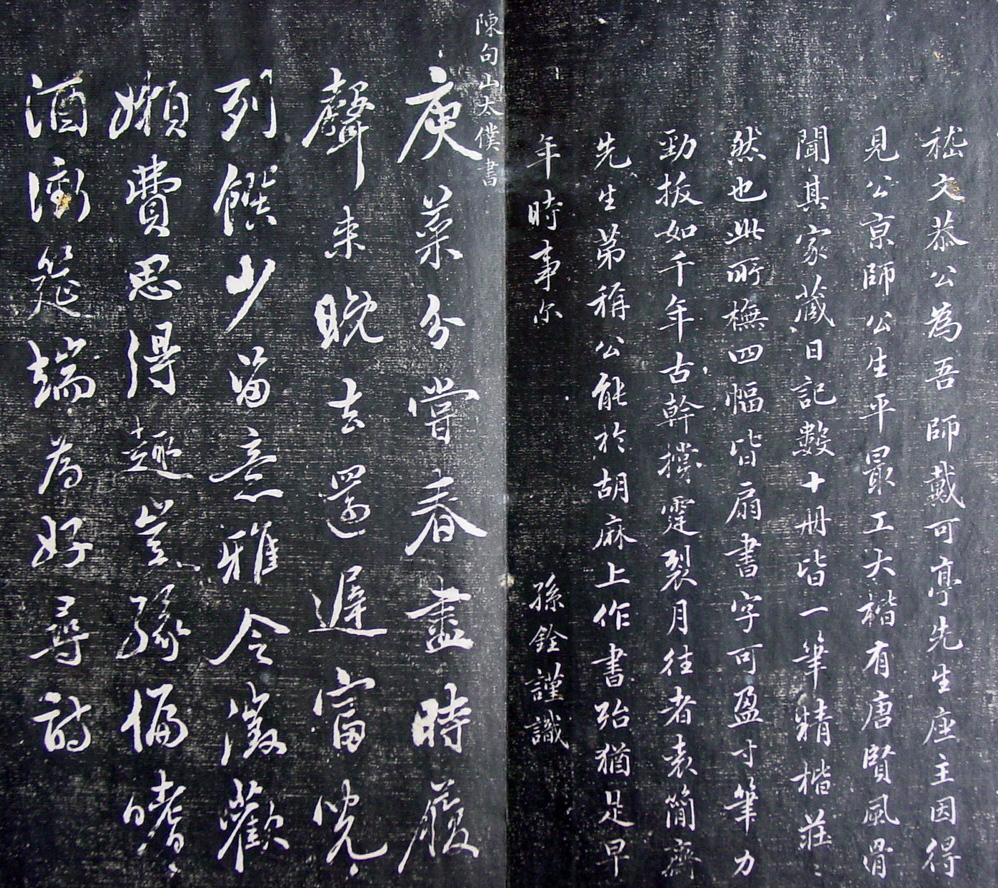 嵇文恭公為吾師戴可亭先生座主因得
見公京師公生平最工大楷有唐賢風骨
聞其家藏日記數十册皆一筆精楷莊〻
然也此所橅四幅皆扇書字可盈寸筆力
勁拔如千年古幹撐霆裂月往者袁簡齋
先生第稱公能於胡麻上作書殆猶是早
年時事尔
孫銓謹識
陳句山太僕書
庚菜分嘗春盡時履
聲来晚去還遲富兒
列饌少留意雅令徵歡
嬾費思得趣豈緣偏嗜
酒衝筵端為好尋詩